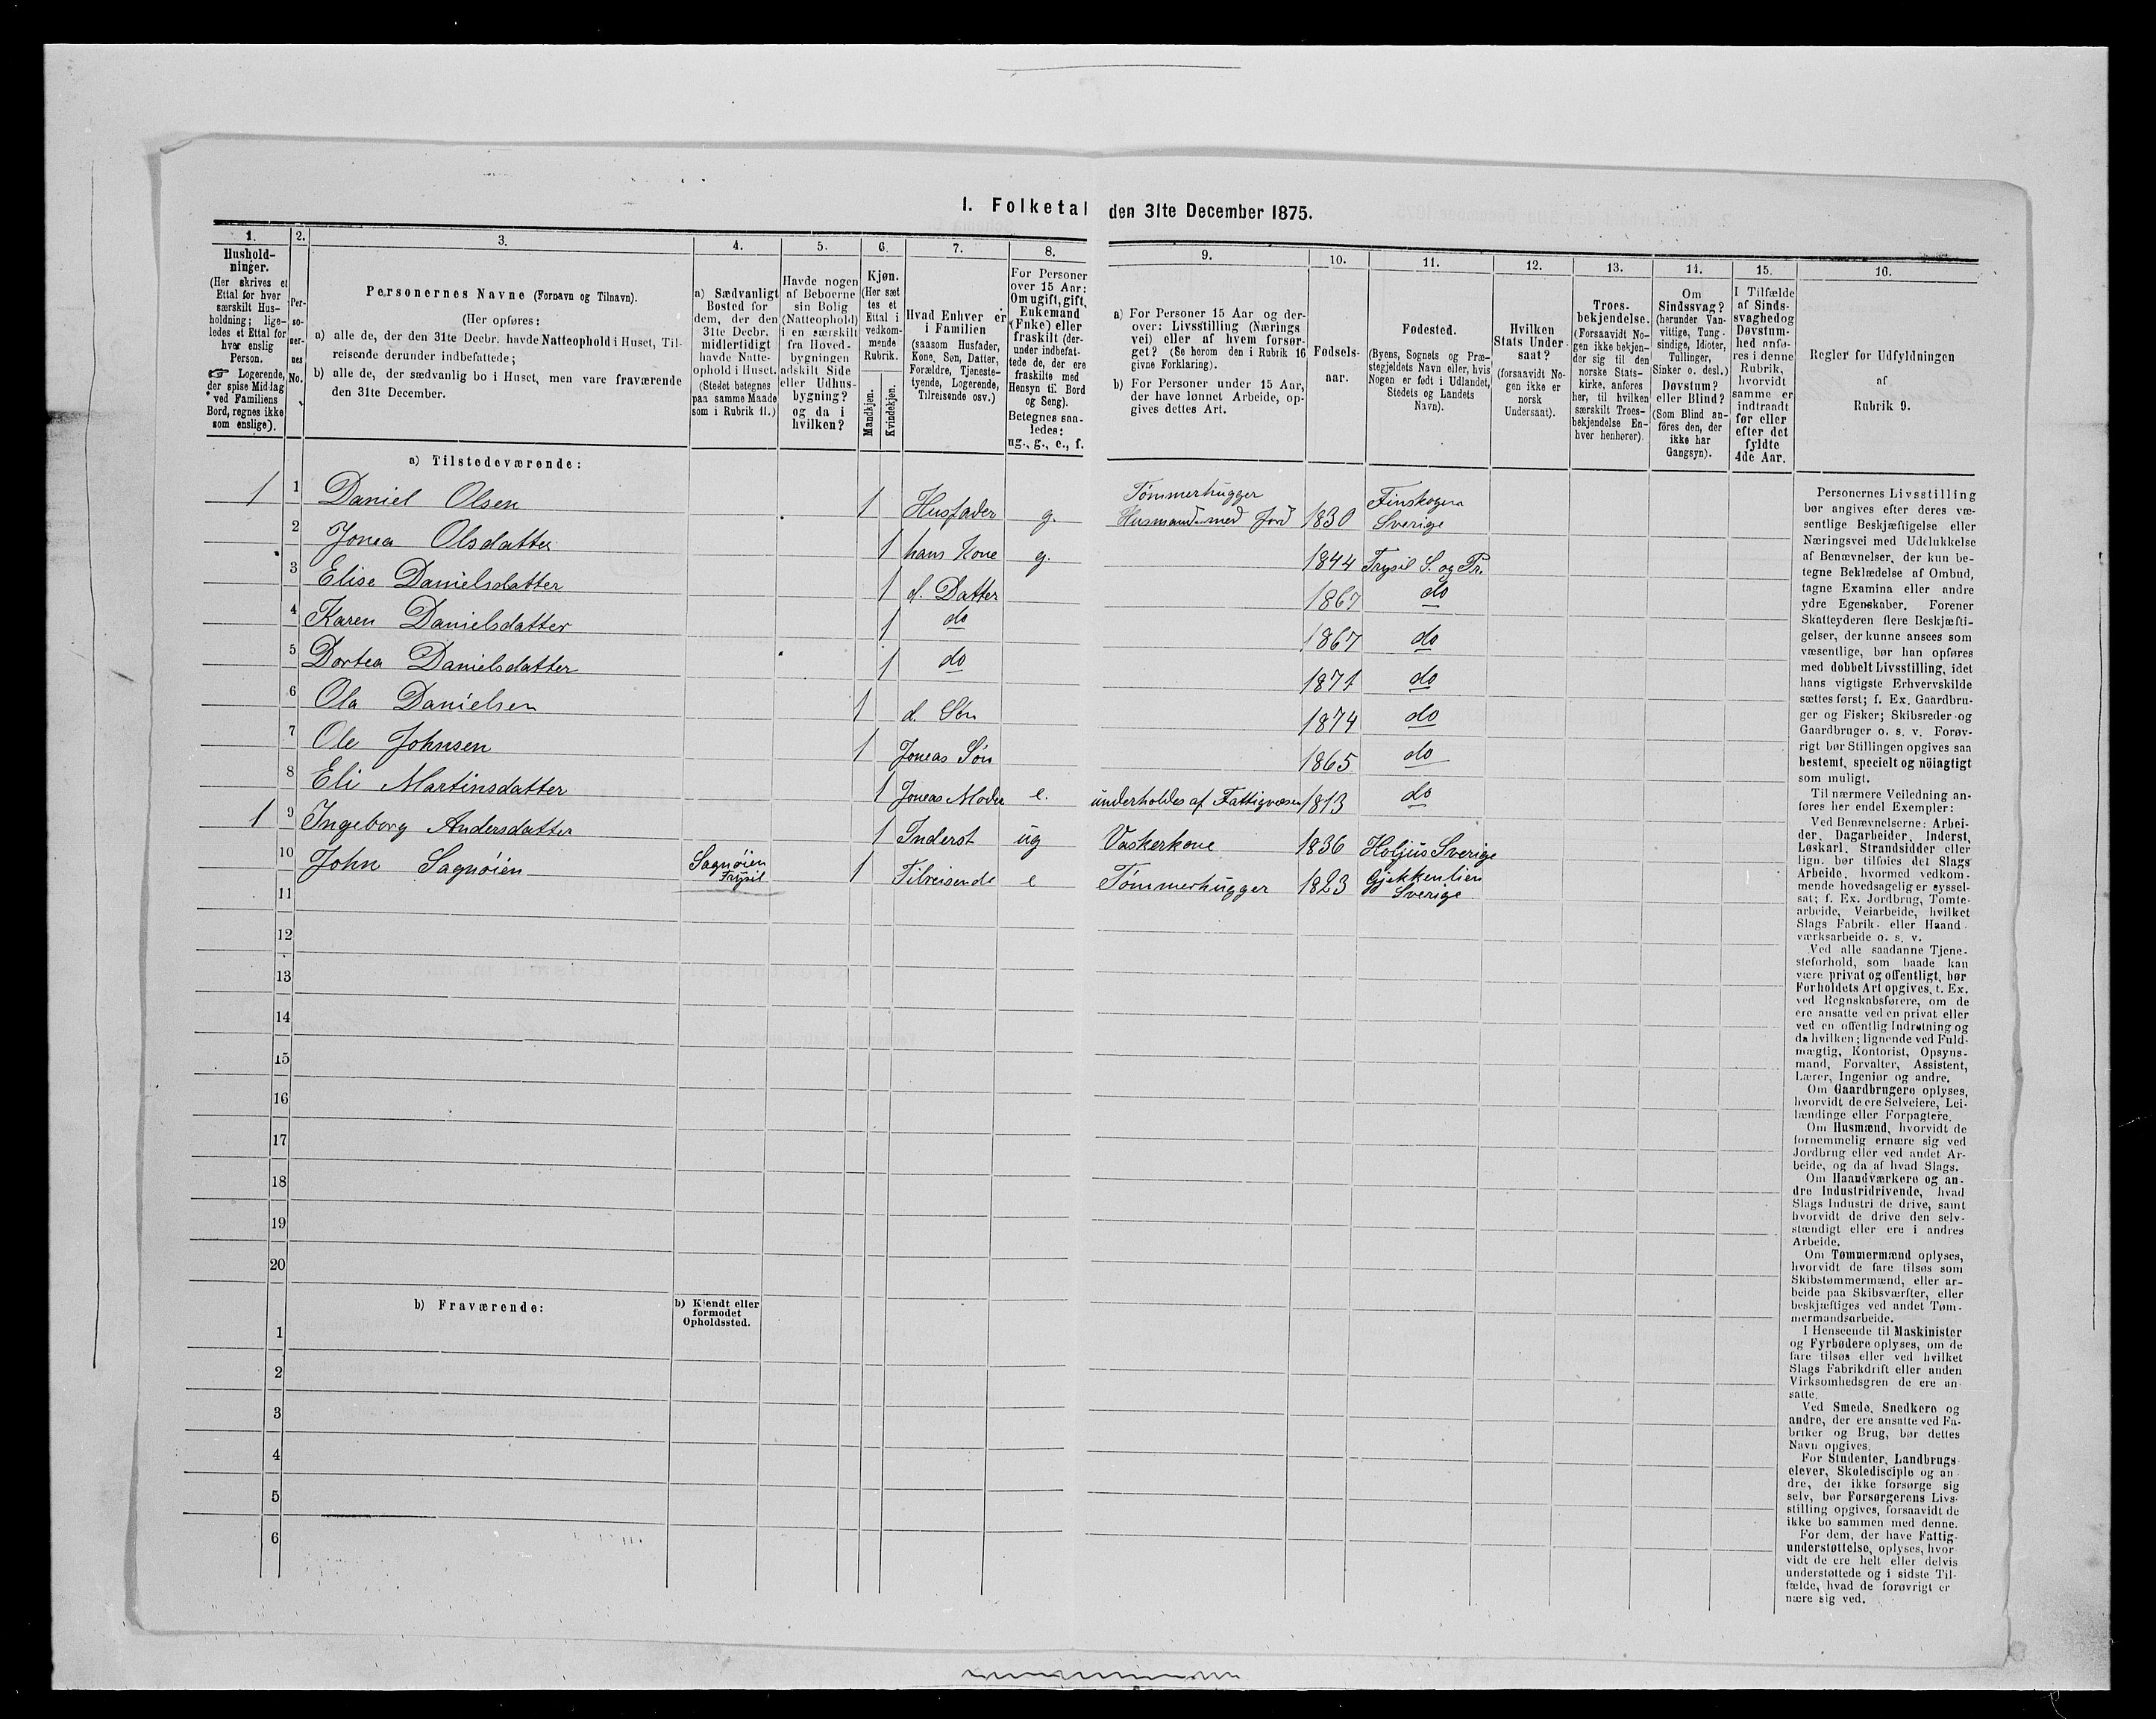 I. Folketal den 31te December 1875.
1.
Hushold-
ninger.
(Her skrives et
Ettal for hver
særskilt Hus-
holdning; lige-
ledes et Ettal for
hver enslig
Person.
☞ Logerende,
der spise Middag
ved Familiens
Bord, regnes ikke
som enslige).
2.
Per-
so-
ner-
nes
No.
3.
Personernes Navne (Fornavn og Tilnavn).
(Her opføres:
a) alle de, der den 31te Decbr. havde Natteophold i Huset, Til-
reisende derunder indbefattede;
b) alle de, der sædvanlig bo i Huset, men vare fraværende
den 31te December.
4.
a) Sædvanligt
Bosted for
dem, der den
31te Decbr.
midlertidigt
havde Natte-
ophold i Huset.
(Stedet betegnes
paa samme Maade
som i Rubrik 11.)
5.
Havde nogen
af Beboerne
sin Bolig
(Natteophold)
i en særskilt
fra Hoved-
bygningen
adskilt Side
eller Udhus-
bygning?
og da i
hvilken?
6.
Kjøn.
(Her sæt
tes et
Ettal i
vedkom-
mende
Rubrik.
Mandkjøn.
Kvindekjøn.
7.
Hvad Enhver er
i Familien
(saasom Husfader,
Kone, Søn, Datter,
Forældre, Tjeneste-
tyende, Logerende,
Tilreisende osv.)
8.
For Personer
over 15 Aar:
Om ugift, gift,
Enkemand
(Enke) eller
fraskilt (der-
under indbefat-
tede de, der ere
fraskilte med
Hensyn til Bord
og Seng).
Betegnes saa-
ledes:
ug., g., e., f.
9.
a) For Personer 15 Aar og der-
over: Livsstilling (Nærings
vei) eller af hvem forsør-
get? (Se herom den i Rubrik 16
givne Forklaring).
b) For Personer under 15 Aar,
der have lønnet Arbeide, op-
gives dettes Art.
10.
Fødsels-
aar.
11.
Fødested.
(Byens, Sognets og Præ-
stegjeldets Navn eller, hvis
Nogen er født i Udlandet,
Stedets og Landets
Navn).
12.
Hvilken
Stats Under-
saat?
(forsaavidt No-
gen ikke er
norsk
Undersaat).
13.
Troes-
bekjendelse.
(Forsaavidt No-
gen ikke bekjen-
der sig til den
norske Stats-
kirke, anføres
her, til hvilken
særskilt Troes-
bekjendelse En-
hver henhører).
14.
Om
Sindssvag?
(herunder Van-
vittige, Tung-
sindige, Idioter,
Tullinger,
Sinker o. desl.)
Døvstum?
eller Blind?
(Som Blind an-
føres den, der
ikke har
Gangsyn).
15.
I Tilfælde
af Sinds-
svaghed og
Døvstum-
hed anfø-
res i denne
Rubrik,
hvorvidt
samme er
indtraadt
før eller
efter det
fyldte
4de Aar.
16.
Regler for Udfyldningen
af
Rubrik 9.
a) Tilstedeværende:
1 1 Daniel Olsen 1 Husfader g. Tømmerhugger Husmand med Jord 1830 Finskogen Sverige
2 Jonea Olsdatter 1 hans Kone g. 1844 Trysil S. og Pr.
3 Elise Danielsdatter 1 d. Datter 1867 do
4 Karen Danielsdatter 1 do 1867 do
5 Dortea Danielsdatter 1 do 1871 do
6 Ola Danielsen 1 d. Søn 1874 do
7 Ole Johnsen 1 Joneas Søn 1865 do
8 Eli Martinsdatter 1 Joneas Moder e. underholdes af Fattigvæsen 1813 do
1 9 Ingeborg Andersdatter 1 Inderst ug Vaskerkone 1836 Holjus Sverige
10 John Sagnøien Sagnøien Trysil 1 Tilreisende e Tømmerhugger 1823 Gjekkenlien Sverige
11
12
13
14
15
16
17
18
19
20
b) Fraværende:
b) Kjendt eller
formodet
Opholdssted.
1
2
3
4
5
6
Personernes Livsstilling
bør angives efter deres væ-
sentlige Beskjæftigelse eller
Næringsvei med Udelukkelse
af Benævnelser, der kun be-
tegne Beklædelse af Ombud,
tagne Examina eller andre
ydre Egenskaber. Forener
Skatteyderen flere Beskjæfti-
gelser, der kunne ansees som
væsentlige, bør han opføres
med dobbelt Livsstilling, idet
hans vigtigste Erhvervskilde
sættes først; f. Ex. Gaardbru-
ger og Fisker; Skibsreder og
Gaardbruger o. s. v. Forøv-
rigt bør Stillingen opgives saa
bestemt, specielt og nöiagtigt
som muligt.
Til nærmere Veiledning an-
føres her endel Exempler:
Ved Benævnelserne: Arbei-
der, Dagarbeider, Inderst,
Løskarl, Strandsidder eller
lign. bør tilføies det Slags
Arbeide, hvormed vedkom-
mende hovedsagelig er syssel-
sat; f. Ex. Jordbrug, Tomte-
arbeide, Veiarbeide, hvilket
Slags Fabrik- eller Haand-
værksarbeide o. s. v.
Ved alle saadanne Tjene-
steforhold, som baade kan
være privat og offentligt, bør
Forholdets Art opgives, t. Ex.
ved Regnskabsførere, om de
ere ansatte ved en privat eller
ved en offentlig Indretning og
da hvilken; lignende ved Fuld-
mægtig, Kontorist, Opsyns-
mand, Forvalter, Assistent,
Lærer, Ingeniør og andre.
Om Gaardbrugere oplyses,
hvorvidt de ere Selveiere, Lei-
lændinge eller Forpagtere.
Om Husmænd, hvorvidt de
fornemmelig ernære sig ved
Jordbrug eller ved andet Ar-
beide, og da af hvad Slags.
Om Haandværkere og an-
dre Industridrivende, hvad
Slags Industri de drive, samt
hvorvidt de drive den selv-
stændigt eller ere i andres
Arbeide.
Om Tømmermænd oplyses,
hvorvidt de fare tilsøs som
Skibstømmermænd, eller ar-
beide paa Skibsværfter, eller
beskjæftiges ved andet Tøm-
mermandsarbeide.
I Henseende til Maskinister
og Fyrbødere oplyses, om de
fare tilsøs eller ved hvilket
Slags Fabrikdrift eller anden
Virksomhedsgren de ere an-
satte.
Ved Smede, Snedkere og
andre, der ere ansatte ved Fa-
briker og Brug, bør dettes
Navn opgives.
For Studenter, Landbrugs-
elever, Skoledisciple og an-
dre, der ikke forsørge sig
selv, bør Forsørgerens Livs-
stilling opgives, forsaavidt de
ikke bo sammen med denne.
For dem, der have Fattig-
understøttelse, oplyses, hvor
vidt de ere helt eller delvis
understøttede og i sidste Til-
fælde, hvad de forøvrigt er
nære sig ved.